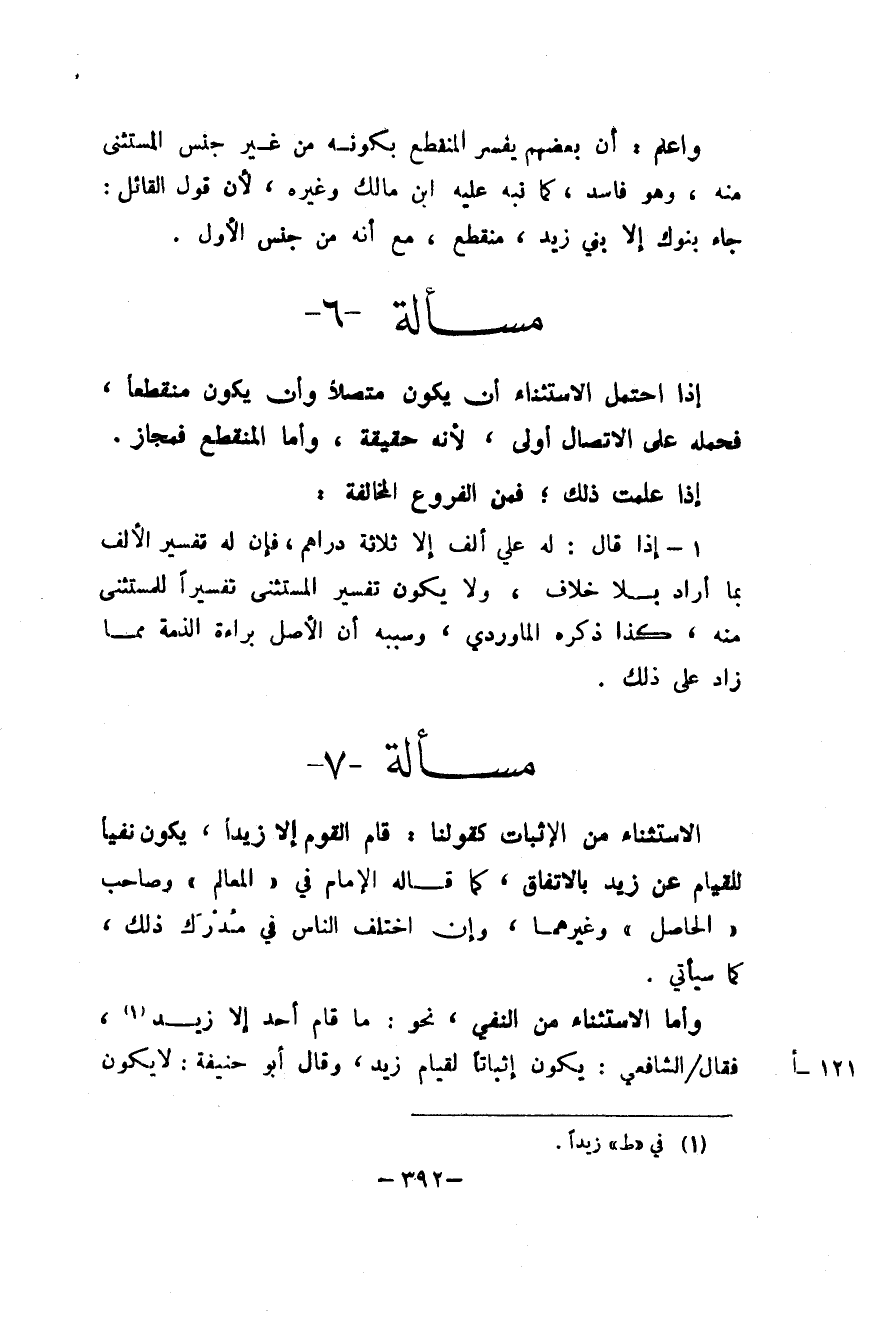 واعلم : أن بعضهم يفسر المنقطع بكونه من غير جنس المستثنى
منه ، وهو فاسد ، كما نبه عليه ابن مالك وغيره ، لأن قول القائل :
جاء بنوك إلا بني زيد ، منقطع ، مع أنه من جنس الأول .
مسألة -٦-
إذا احتمل الاستثناء أن يكون متصلاً وأن يكون منقطعاً ،
فحمله على الاتصال أولى ، لأنه حقيقة ، وأما المنقطع فمجاز .
إذا علمت ذلك ؛ فمن الفروع المخالفة :
١ - إذا قال : له علي ألف إلا ثلاثة دراهم ، فإن له تفسير الألف
بما أراد بلا خلاف ، ولا يكون تفسير المستثنى تفسيراً للمستثنى
منه ، كذا ذكره الماوردي ، وسببه أن الأصل براءة الذمة مما
زاد على ذلك .
مسألة -٧-
الاستثناء من الإثبات كقولنا : قام القوم إلا زيداً ، يكون نفياً
للقيام عن زيد بالاتفاق ، كما قاله الإمام في « المعالم » وصاحب
« الحاصل » وغيرهما ، وإن اختلف الناس في مُدْرَك ذلك ،
كما سيأتي .
وأما الاستثناء من النفي ، نحو : ما قام أحد إلا زيد (١) ،
فقال/الشافعي : يكون إثباتاً لقيام زيد ، وقال أبو حنيفة : لايكون
١٢١ -أ
(١) في «ط» زيداً .
-٣٩٢-